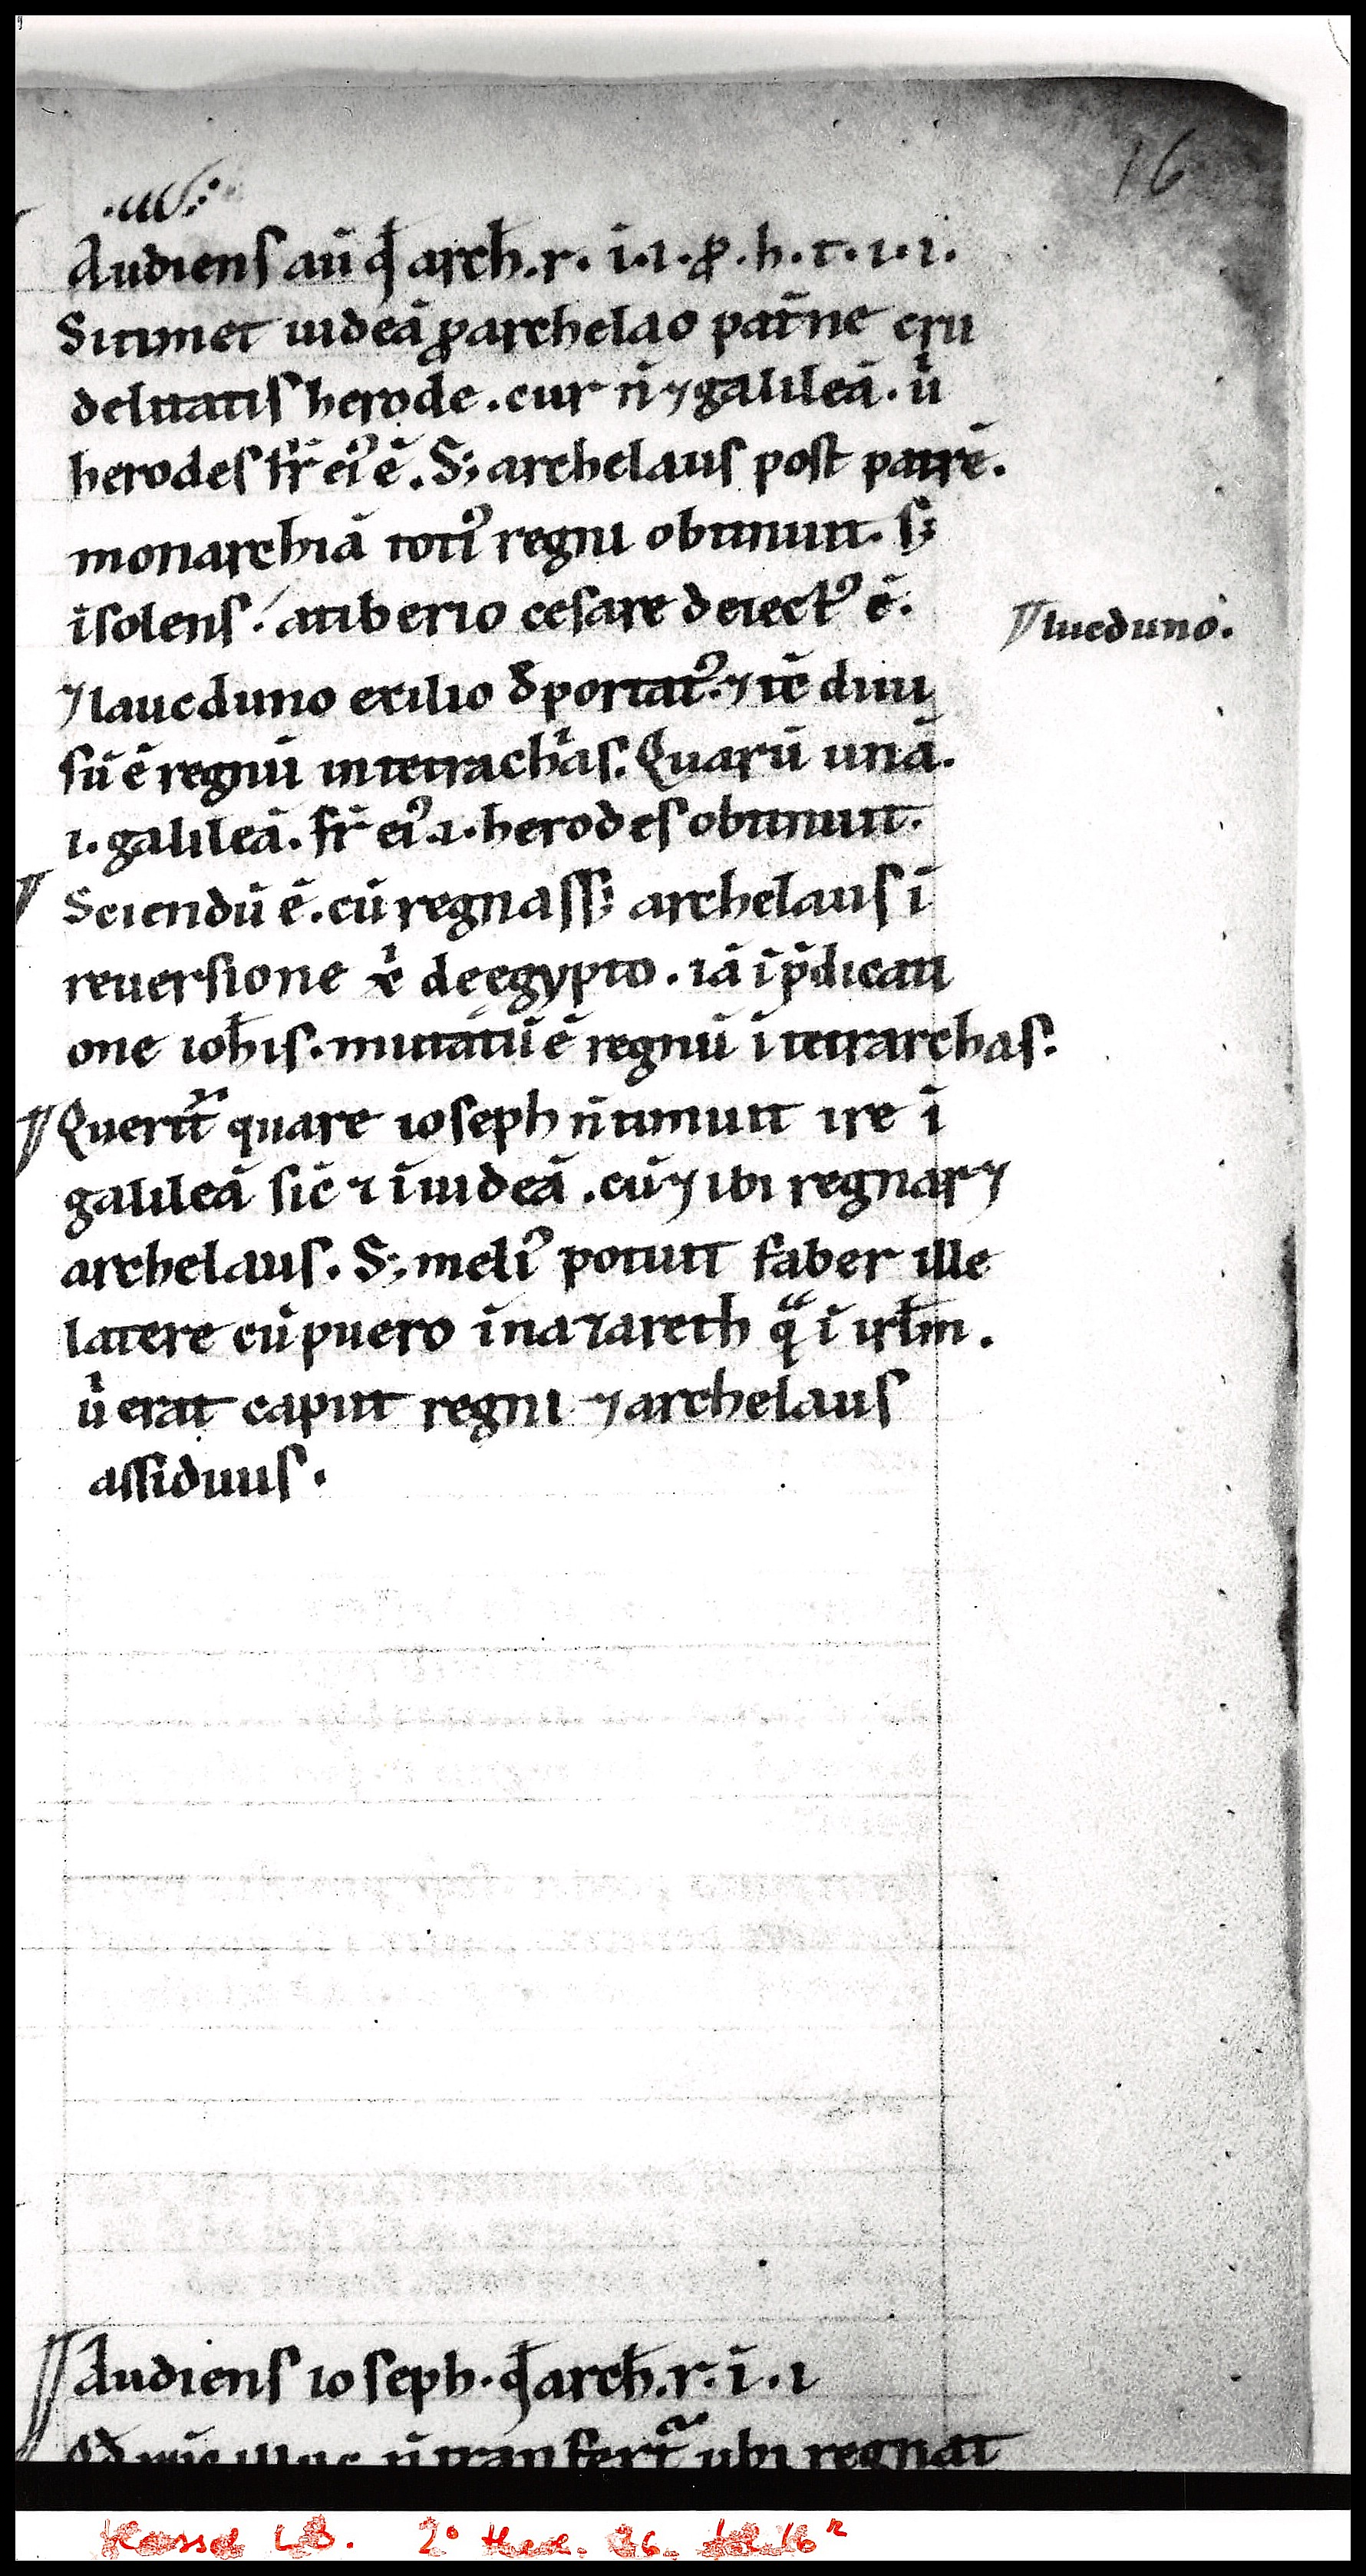 16
Audienſ aū qđ arch̄.r. ī.ı.ꝓ.h.t.ı.ı.
Si timet iudeā ꝓ archelao pat̄ne cru
delitatiſ herode. cur n̄ ⁊ galileā. ů
herodeſ fr̄ ei⁹ ē. S; archelauſ poſt patrē.
monarchiā toti⁹ regni obtinuit. ſ;
īſolenſ. a tiberio ceſare deiect⁹ ē.
⁊ laucduno exilio đportat⁹. ⁊ it̄e diui
ſū ē regnū in tetrach̓aſ. Quarū unā.
.ı. galileā. fr̄ ei⁹.ı. herodeſ obtinuit.
¶ lucduno.
Sciendū ē. cū regnaſſ; archelauſ ī
reuerſione xp̄i de egypto. iā ī p̄dicati
one ioh̄iſ. mutatū ē regnū ī tetrarchaſ.
¶ Querit̄ quare ioſeph n̄ timuit ire ī
galileā ſic̄ ⁊ ī iudeā. cū ⁊ ibi regnar⁊
archelauſ. S; meli⁹ potuit faber ille
latere cū puero ī nazareth qͣ ī irłm.
ů erat caput regni ⁊ archelauſ
aſſiduuſ.
¶ Audienſ ioſeph. qđ arch̄.r. ī.ı
illuc n̄ tranſfert̄ ubi regnat
LB. 2°